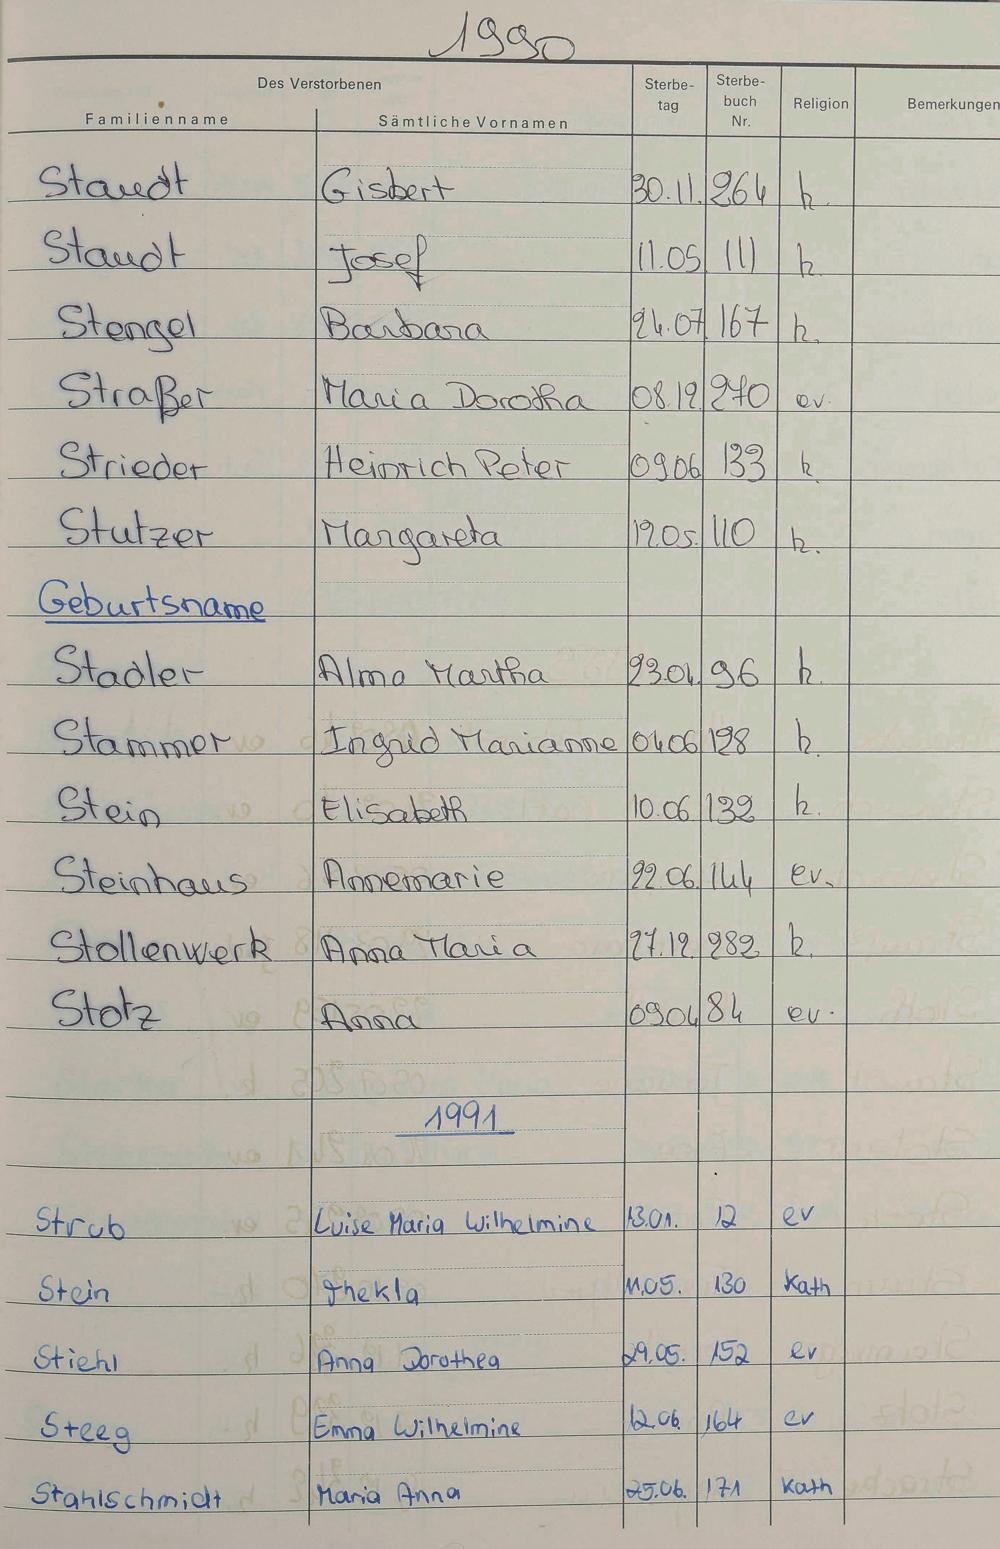 1990
Des Verstorbenen
Familienname Sämtliche Vornamen Sterbe-tag Sterbe-buch Nr. Religion Bemerkungen
Staudt Gisbert 30.11. 264 k.
Staudt Josef 11.05 111 k.
Stengel Barbara 24.07 167 k.
Straßer Maria Dorotha 08.12 270 ev.
Strieder Heinrich Peter 09.06 133 k.
Stutzer Margareta 19.05. 110 k.
Geburtsname
Stadler Alma Martha 23.04. 96 k.
Stammer Ingrid Marianne 04.06 128 k.
Stein Elisabeth 10.06 132 k.
Steinhaus Annemarie 22.06. 144 ev.
Stollenwerk Anna Maria 27.12. 282 k.
Stotz Anna 09.04 84 ev.
1991
Strub Luise Maria Wilhelmine 13.01. 12 ev
Stein Thekla 11.05. 130 Kath
Stiehl Anna Dorothea 29.05. 152 ev
Steeg Emma Wilhelmine 12.06. 164 ev
Stahlschmidt Maria Anna 25.06. 171 Kath